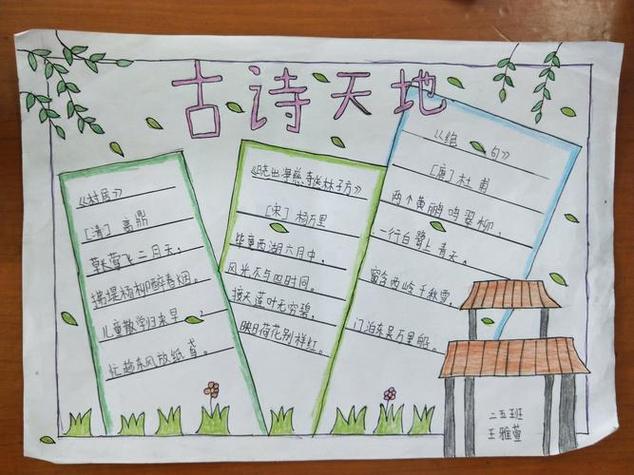 古诗天地
《村居》
[清] 高鼎
草长莺飞二月天，
拂堤杨柳醉春烟。
儿童散学归来早，
忙趁东风放纸鸢。
《晓出净慈寺送林子方》
[宋] 杨万里
毕竟西湖六月中，
风光不与四时同。
接天莲叶无穷碧，
映日荷花别样红。
《绝句》
[唐] 杜甫
两个黄鹂鸣翠柳，
一行白鹭上青天。
窗含西岭千秋雪，
门泊东吴万里船。
二五班
王雅萱